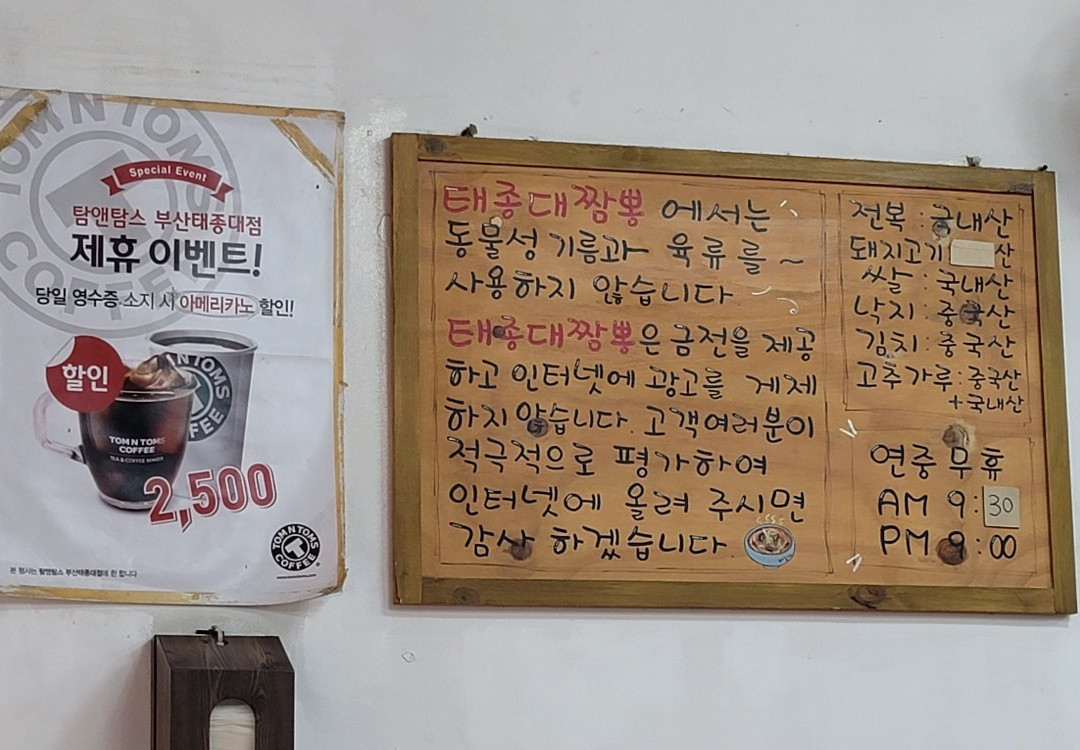 TOM N TOMS
COFFEE
Special Event
탐앤탐스 부산태종대점
제휴 이벤트!
당일 영수증 소지 시 아메리카노 할인!
할인
TOM N TOMS
COFFEE
TOM N TOMS
COFFEE
2,500
TOM N TOMS
COFFEE
본 행사는 탐앤탐스 부산태종대점에 한 합니다
태종대짬뽕 에서는
동물성 기름과 육류를 ~
사용하지 않습니다
태종대짬뽕은 금전을 제공
하고 인터넷에 광고를 게제
하지 않습니다. 고객여러분이
적극적으로 평가하여
인터넷에 올려 주시면
감사 하겠습니다.
전복 : 국내산
돼지고기 산
쌀 : 국내산
낙지 : 중국산
김치 : 중국산
고추가루 : 중국산
+국내산
연중무휴
AM 9 : 30
PM 9 : 00